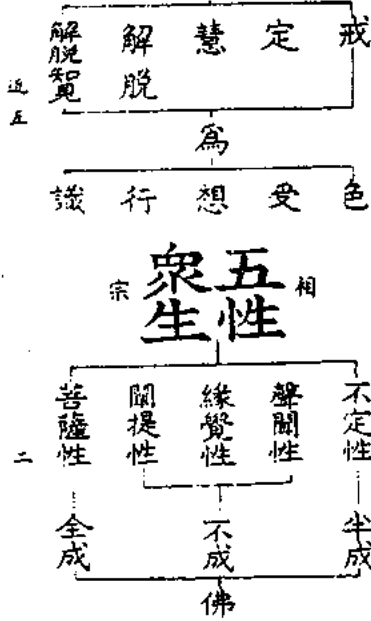 戒 定 慧 解脫 解脫智見
五
爲
色 受 想 行 識
相 五性 衆生 宗
不定性 聲聞性 緣覺性 闡提性 菩薩性
二
半成 不成 全成
佛